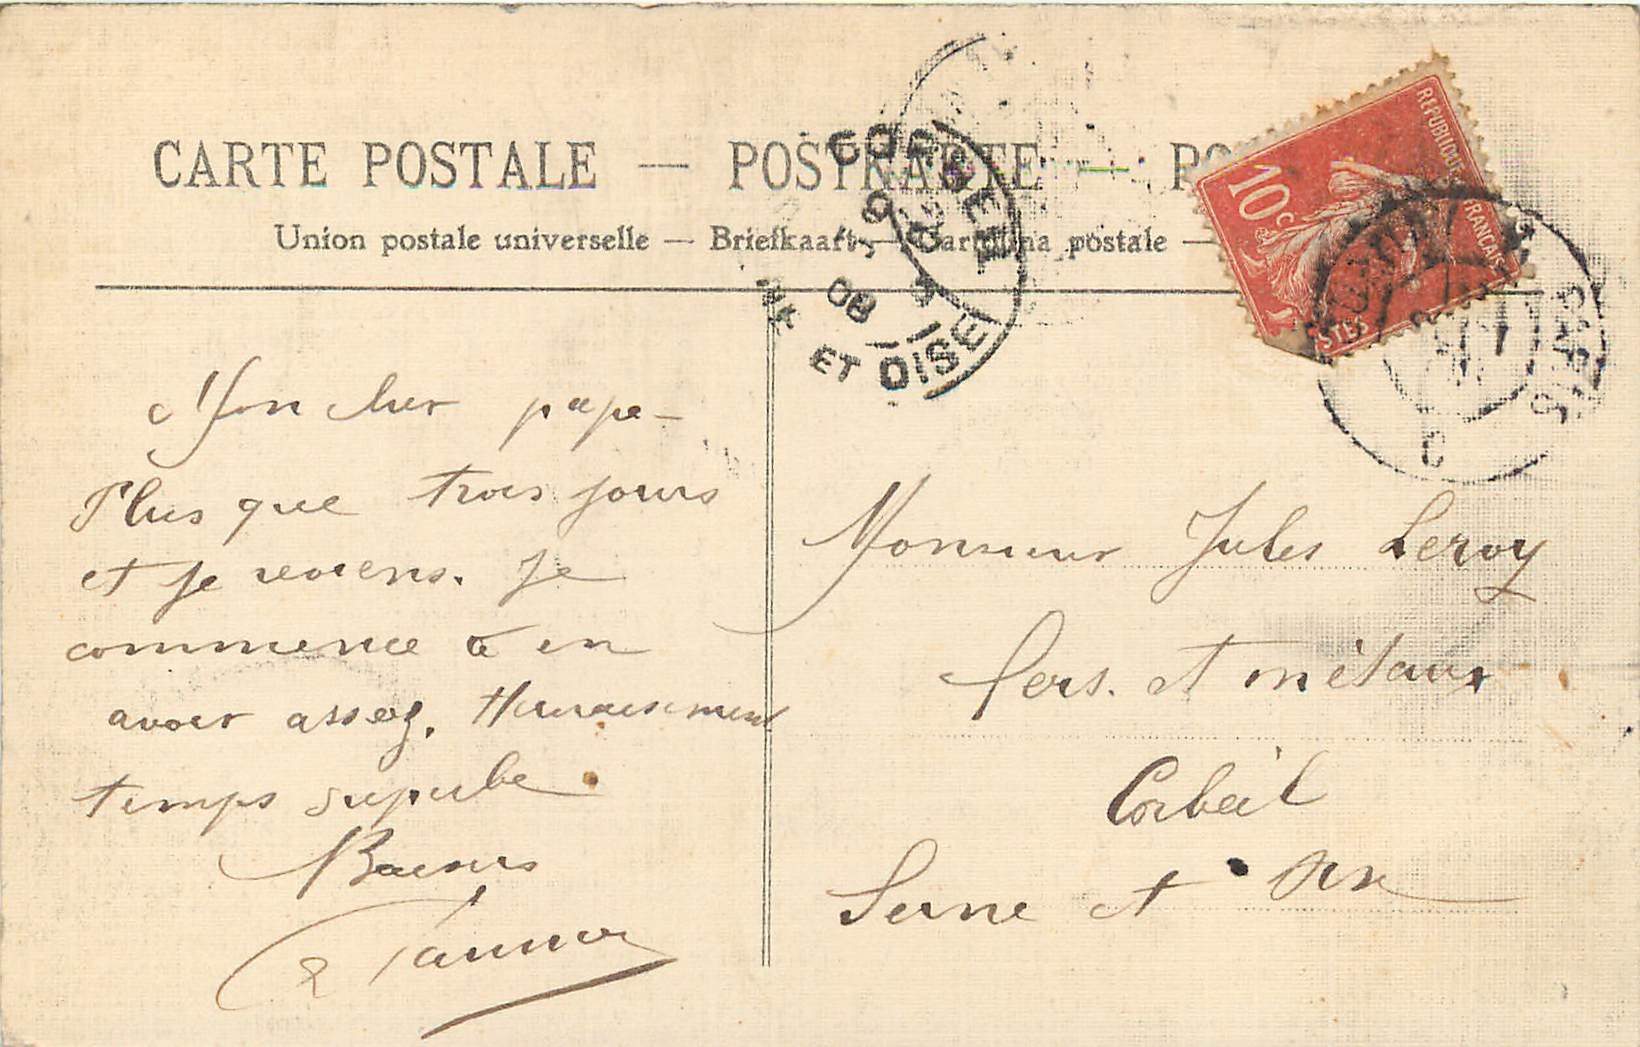 CARTE POSTALE — POSTKARTE —
Union postale universelle — Briefkaart — Cartolina postale —
REPUBLIQUE FRANCAISE
10c
CORBEIL
08
ET OISE
Mon cher papa —
Plus que trois jours
et je reviens. Je
commence à en
avoir assez. Heureusement
temps superbe
Baisers
Monsieur Jules Leroy
fers. et métaux
Corbeil
Seine et Oise